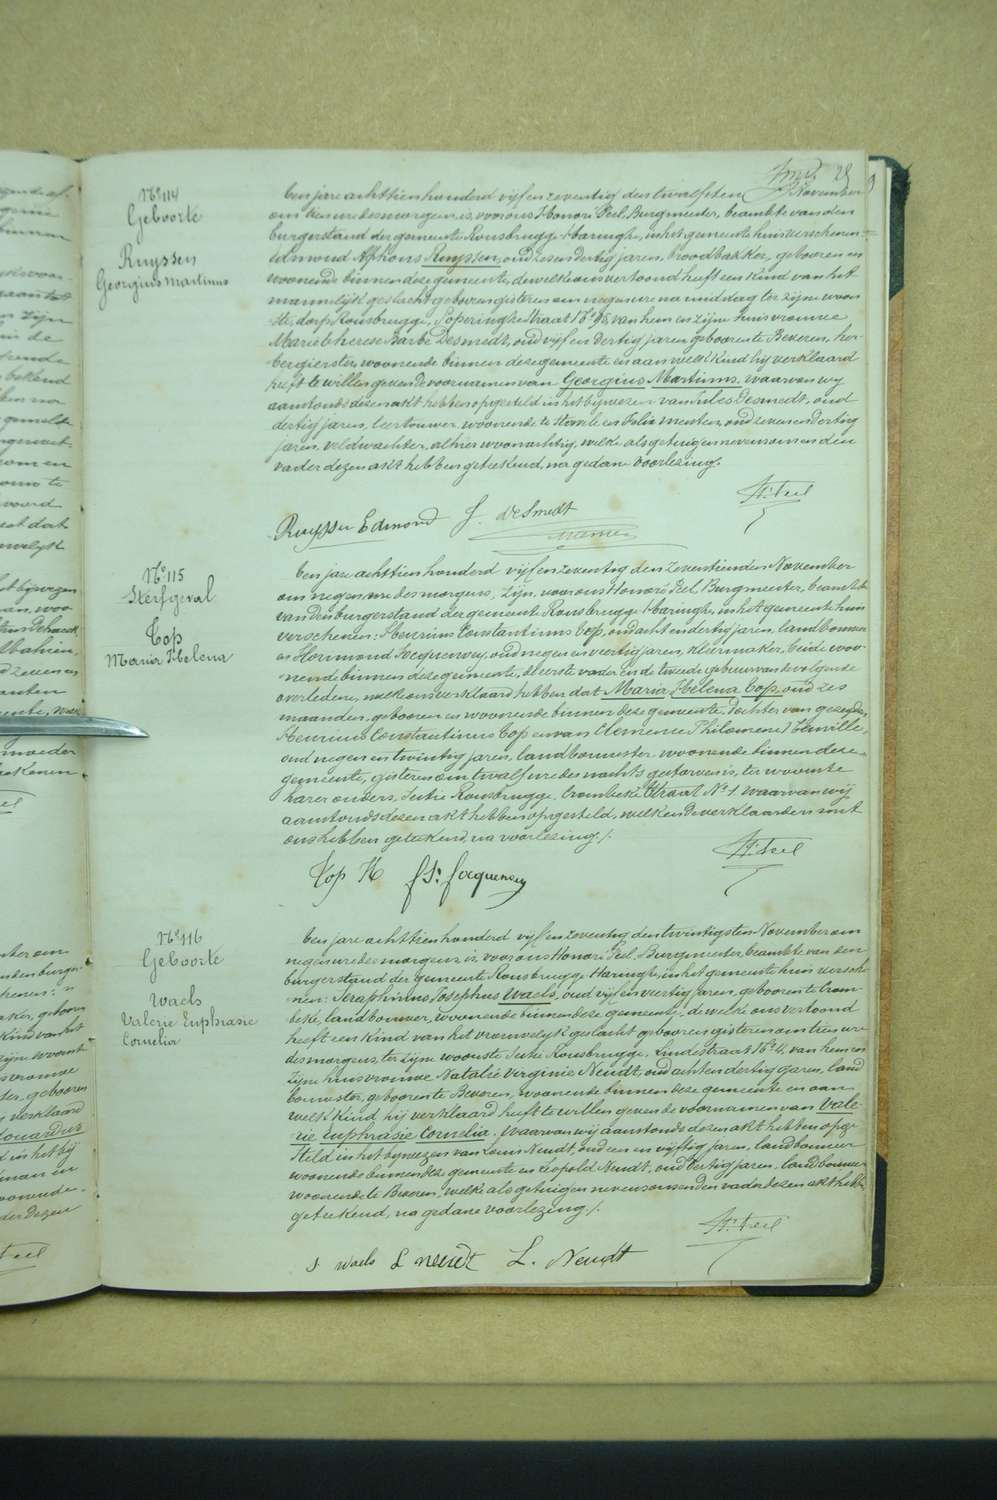 28
N° 114
Geboorte
Ruyssen
Georgius Martinus
Ten jare achttien honderd vijf en zeventig den twaalfsten November
om tien ure des morgens, is voor ons Honoré Teel Burgmeester, beambte van den
burgerstand der gemeente Rousbrugge-Haringhe, in het gemeente huis verschenen
Edmond Alphons Ruyssen, oud zes en dertig jaren, broodbakker, geboren en
woonende binnen deze gemeente, dewelke ons vertoond heeft een kind van het
mannelijk geslacht geboren gisteren om negen ure na middag ter zijne woon
ste, dorp Rousbrugge, Poperinghe Straat N° 98, van hem en zijne huisvrouwe
Marie Therese Barbe Desmedt, oud vijf en dertig jaren, geboren te Beveren, her-
bergierster, woonende binnen deze gemeente en aan welk kind hij verklaard
heeft te willen geven de voornamen van Georgius Martinus. Waarvan wij
aanstonds dezen akt hebben opgesteld in het bijwezen van Jules Desmedt, oud
dertig jaren, leertouwer, woonende te Stavele en Felix Memen, oud zeven en dertig
jaren, veldwachter, alhier woonachtig, welke als getuigen nevens ons en den
vader dezen akt hebben geteekend, na gedane voorlezing.
Ruyssen Edmond J. deSmedt
H. Teel
N° 115
Sterfgeval
Top
Maria Helena
Ten jare achttien honderd vijf en zeventig den zeventienden November
om negen ure des morgens, zijn, voor ons Honoré Teel, Burgmeester, beambte
van den burgerstand der gemeente Rousbrugge-Haringhe, in het gemeente huis
verschenen: Henrius Constantinus Top, oud acht en dertig jaren, landbouwer
en Hormond Jocquenoy, oud negen en veertig jaren, kleermaker, beide woo-
nende binnen deze gemeente, de eerste vader en de tweede gebuur van de volgende
overledene, welke ons verklaard hebben dat Maria Helena Top, oud zes
maanden, geboren en woonende binnen deze gemeente, dochter van gezeiden
Henrius Constantinus Top en van Clemence Philomene Hauville,
oud negen en twintig jaren, landbouwster woonende binnen deze
gemeente, gisteren om twaalf ure des nachts gestorven is, ter woonste
harer ouders, Sectie Rousbrugge, Crombeke Straat N° 1. Waarvan wij
aanstonds dezen akt hebben opgesteld, welken de verklaarders met
ons hebben geteekend, na voorlezing./.
Top H Jocquenoy
H. Teel
N° 116
Geboorte
Waels
Valerie Euphrasie
Cornelia
Ten jare achttien honderd vijf en zeventig den twintigsten November om
negen ure des morgens is voor ons Honoré Teel, Burgmeester, beambte van den
burgerstand der gemeente Rousbrugge Haringhe, in het gemeente huis versche-
nen: Seraphinus Josephus Waels, oud vijf en veertig jaren, geboren te Crom-
beke, landbouwer, woonende binnen deze gemeente, dewelke ons vertoond
heeft een kind van het vrouwelijk geslacht geboren gisteren om tien ure
des morgens, ter zijne woonste Sectie Rousbrugge, Lindestraat N° 4, van hem en
zijne huisvrouwe Natalie Virginie Neudt, oud acht en dertig jaren, land
bouwster, geboren te Beveren, woonende binnen deze gemeente en aan
welk kind hij verklaard heeft te willen geven de voornamen van Vale-
rie Euphrasie Cornelia. Waarvan wij aanstonds dezen akt hebben opge
steld in het bijwezen van Louis Neudt, oud een en vijftig jaren, landbouwer
woonende binnen deze gemeente en Leopold Neudt, oud dertig jaren, landbouwer
woonende te Beveren, welke als getuigen nevens ons en den vader dezen akt hebben
geteekend, na gedane voorlezing./.
S Waels L neudt L. Neudt
H. Teel